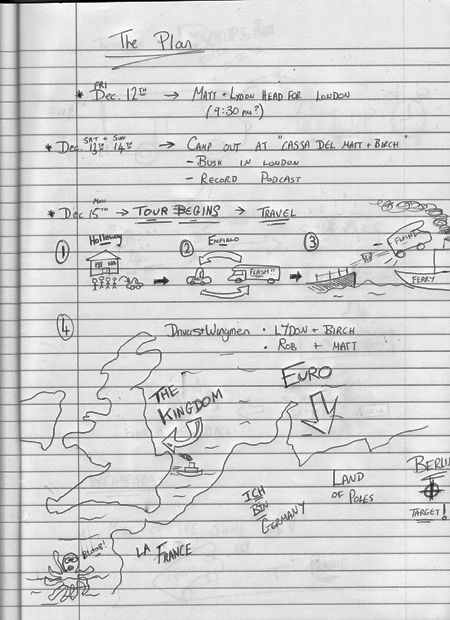 The Plan
FRI
* Dec. 12TH → MATT + LYDON HEAD FOR LONDON
(9:30 PM?)
SAT + SUN
* Dec. 13TH 14TH → CAMP OUT AT "CASSA DEL MATT + BIRCH"
- BUSK IN LONDON
- RECORD PODCAST
MON
* Dec 15TH → TOUR BEGINS → TRAVEL
1 Holloway
2 ENFIELD
3
FLASH!!
FLYING
FERRY
4
Drivers + Wingmen • LYDON + BIRCH
• ROB + MATT
THE KINGDOM
EURO
ICH BIN GERMANY
LAND OF POLES
BERLI
TARGET!
LA FRANCE